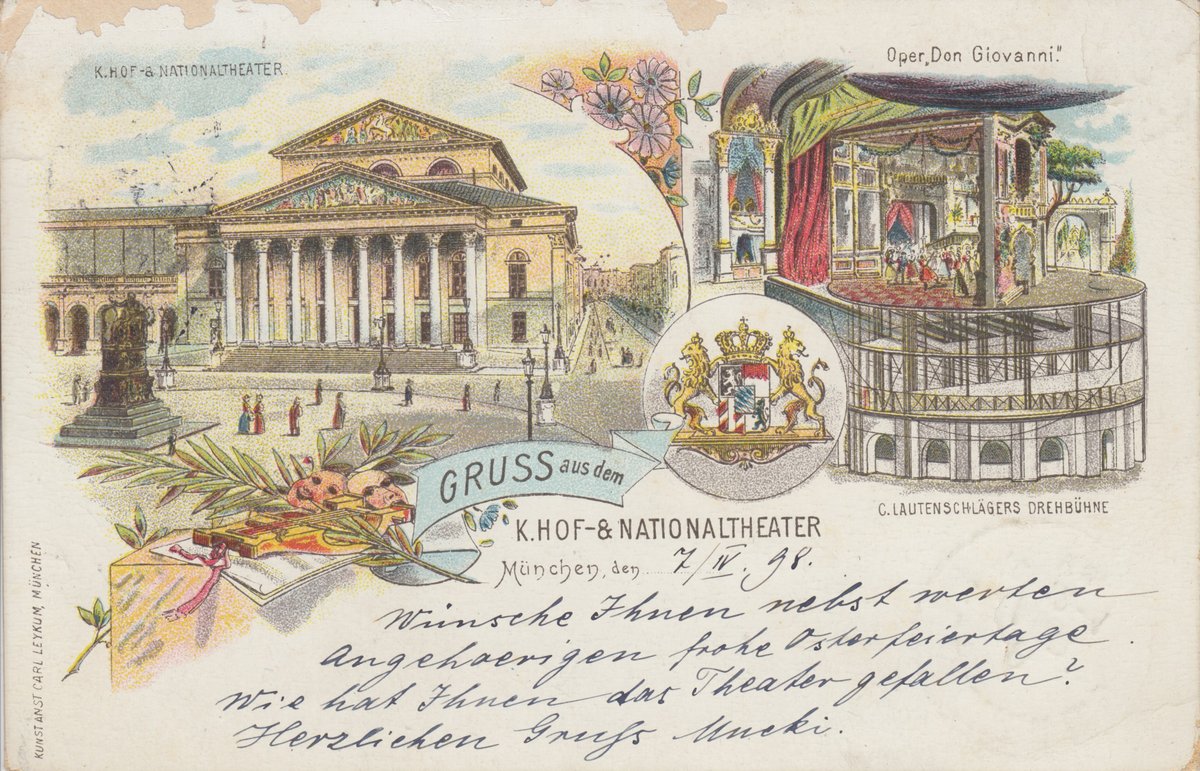 K. HOF- & NATIONALTHEATER.
Oper „Don Giovanni".
GRUSS aus dem
K. HOF- & NATIONALTHEATER
C. LAUTENSCHLÄGERS DREHBÜHNE
München, den 7/IV. 98.
Wünsche Ihnen nebst werten
Angehoerigen frohe Osterfeiertage.
Wie hat Ihnen das Theater gefallen?
Herzlichen Gruss Mucki.
KUNSTANST CARL LEYKUM, MÜNCHEN